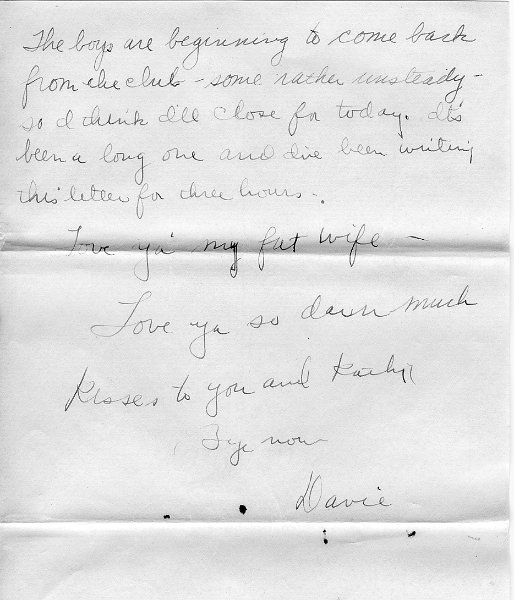 The boys are beginning to come back
from the club - some rather unsteady -
so I think I'll close for today. It's
been a long one and I've been writing
this letter for three hours.
Love ya' my fat wife -
Love ya so darn much
Kisses to you and
Bye now
Davie